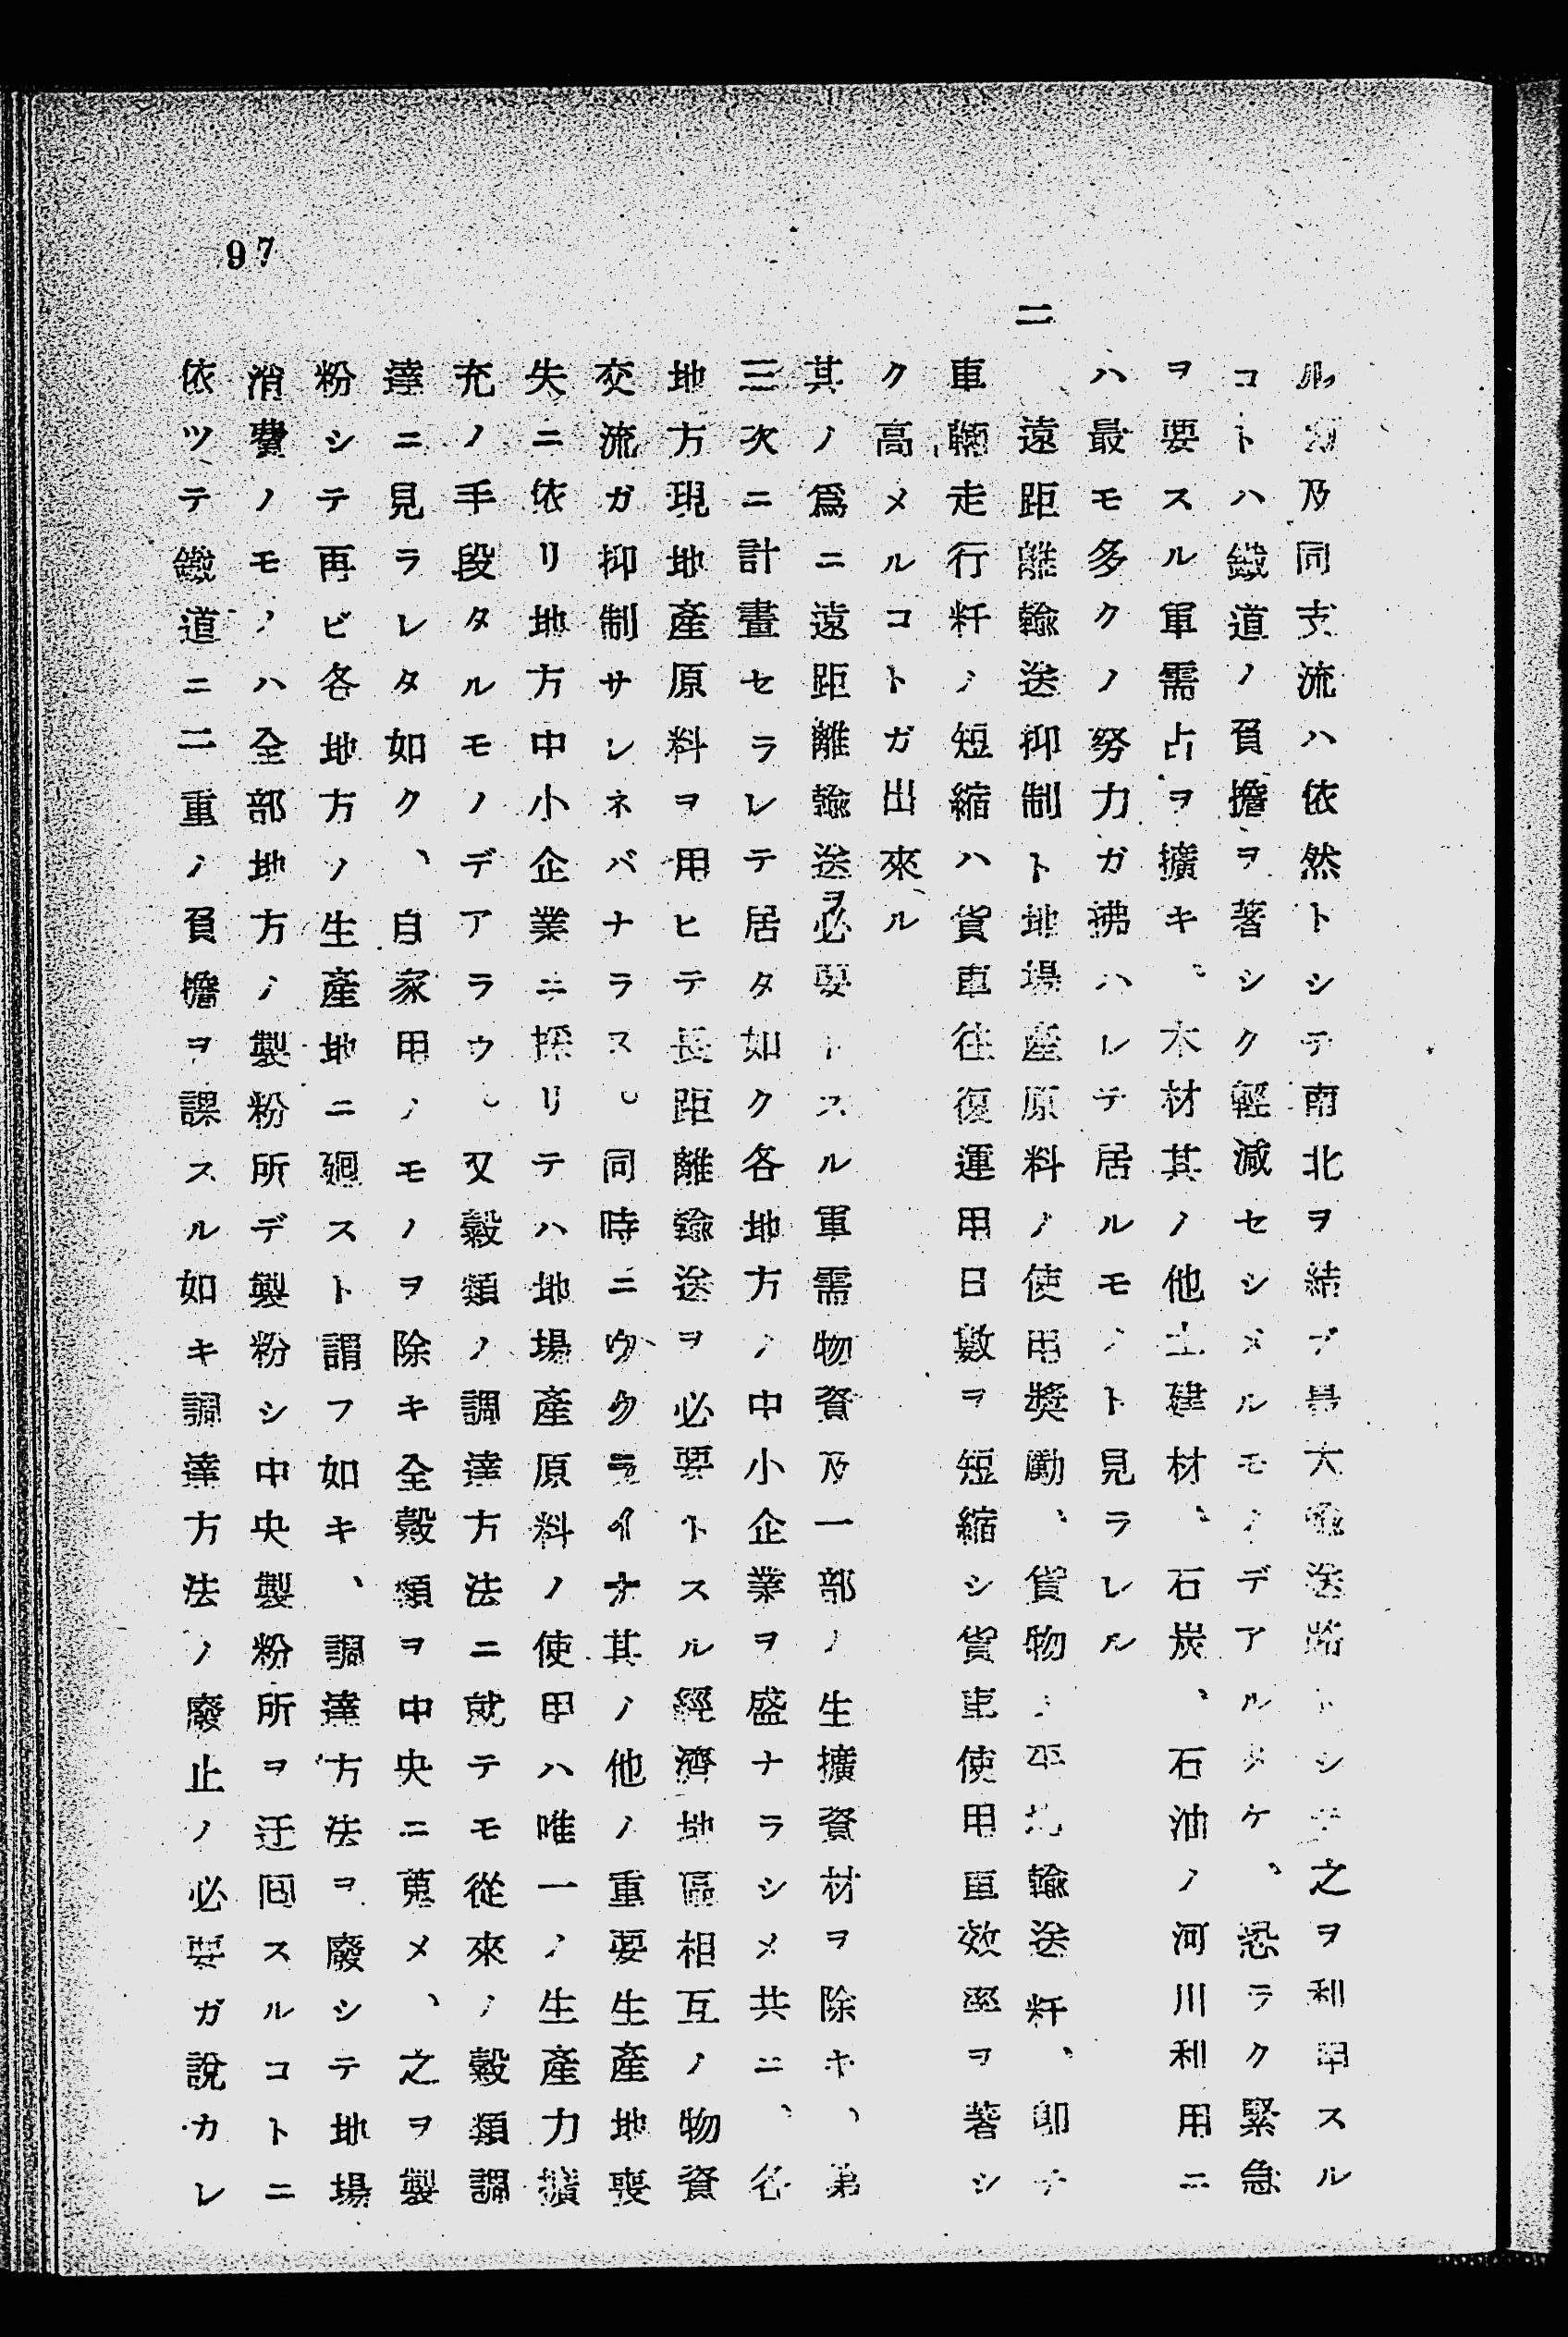 97
ル河及同支流ハ依然トシテ南北ヲ結ブ最大輸送路トシテ之ヲ利用スル
コトハ鐵道ノ負擔ヲ著シク輕減セシメルモノデアルダケ、恐ラク緊急
ヲ要スル軍需占ヲ擴キ、木材其ノ他土建材、石炭、石油ノ河川利用ニ
ハ最モ多クノ努力ガ拂ハレテ居ルモノト見ラレル
二
遠距離輸送抑制ト地場産原料ノ使用奬勵、貨物ノ平均輸送粁、卽チ
車輛走行粁ノ短縮ハ貨車往復運用日數ヲ短縮シ貨車使用車效率ヲ著シ
ク高メルコトガ出來ル
其ノ爲ニ遠距離輸送ヲ必要トスル軍需物資及一部ノ生擴資材ヲ除キ、第
三次ニ計畫セラレテ居タ如ク各地方ノ中小企業ヲ盛ナラシメ共ニ、各
地方現地產原料ヲ用ヒテ長距離輸送ヲ必要トスル經濟地區相互ノ物資
交流ガ抑制サレネバナラス。同時ニウクライナ其ノ他ノ重要生產地喪
失ニ依リ地方中小企業ニ採リテハ地場產原料ノ使用ハ唯一ノ生產力擴
充ノ手段タルモノデアラウ。又穀類ノ調達方法ニ就テモ從來ノ穀類調
達ニ見ラレタ如ク、自家用ノモノヲ除キ全穀類ヲ中央ニ蒐メ、之ヲ製
粉シテ再ビ各地方ノ生產地ニ廻スト謂フ如キ、調達方法ヲ廢シテ地場
消費ノモノハ全部地方ノ製粉所デ製粉シ中央製粉所ヲ迂囘スルコトニ
依ツテ鐵道ニ二重ノ負擔ヲ課スル如キ調達方法ノ廢止ノ必要ガ說カレ